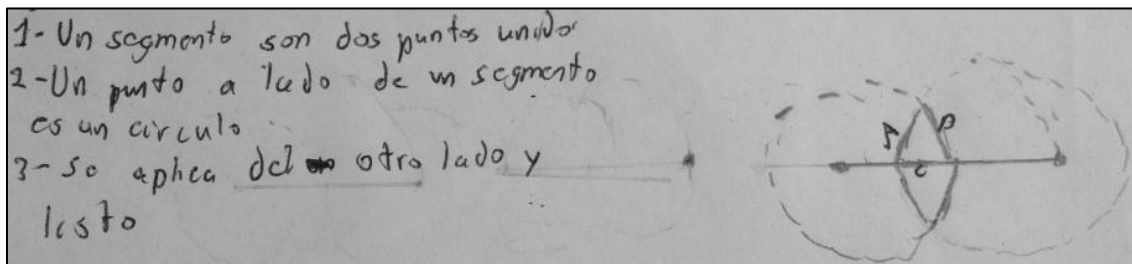 1- Un segmento son dos puntos unido
2- Un punto a lado de un segmento
es un circulo
3- Se aplica del otro lado y
listo
P
c